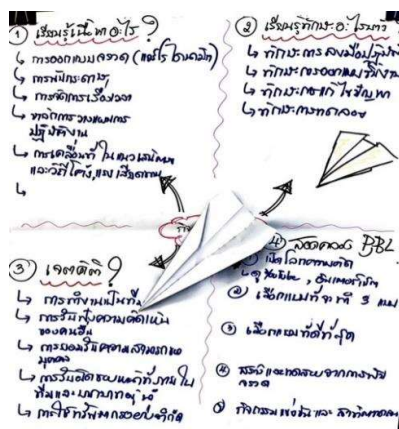 ① เรียนรู้เนื้อหาอะไร?
↳ การออกแบบจรวด (แอโรไดนามิก)
↳ การพับกระดาษ
↳ การจัดการเรื่องเวลา
↳ หลักการวางแผนการ
ปฏิบัติงาน
↳ การเคลื่อนที่ในแนว
และวิถีโค้ง, แรงเสียดทาน
② เรียนรู้ทักษะอะไรบ้าง
↳ ทักษะการลงมือปฏิบัติ
↳ ทักษะการออกแบบชิ้นงาน
↳ ทักษะการแก้ไขปัญหา
↳ ทักษะการทดลอง
③ เจตคติ?
↳ การทำงานเป็นทีม
↳ การรับฟังความคิดเห็น
ของคนอื่น
↳ การยอมรับความสามารถของ
บุคคล
↳ การรับผิดชอบหน้าที่การงานใน
ทีมและ
↳ การใช้ทรัพยากรอย่างจำกัด
④ สอดคล้อง PBL
① เปิดโลกความคิด
↳ ดู Youtube, อินเทอร์เน็ต
② เลือกแบบที่จะทำ 3 แบบ
③ เลือกแบบที่ดีที่สุด
④ สร้างและทดสอบจากการพับ
จรวด
⑤ กิจกรรมแข่งขันและ